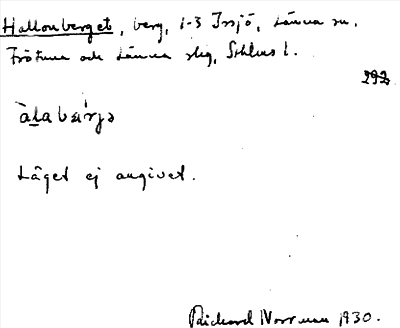 Hallonberget, berg, 1-3 Issjö, Länna sn,
Frötuna och Länna skg, Sthlms l.
292
àlabæ̀rjə
Läget ej angivet.
Rickard Norrman 1930.